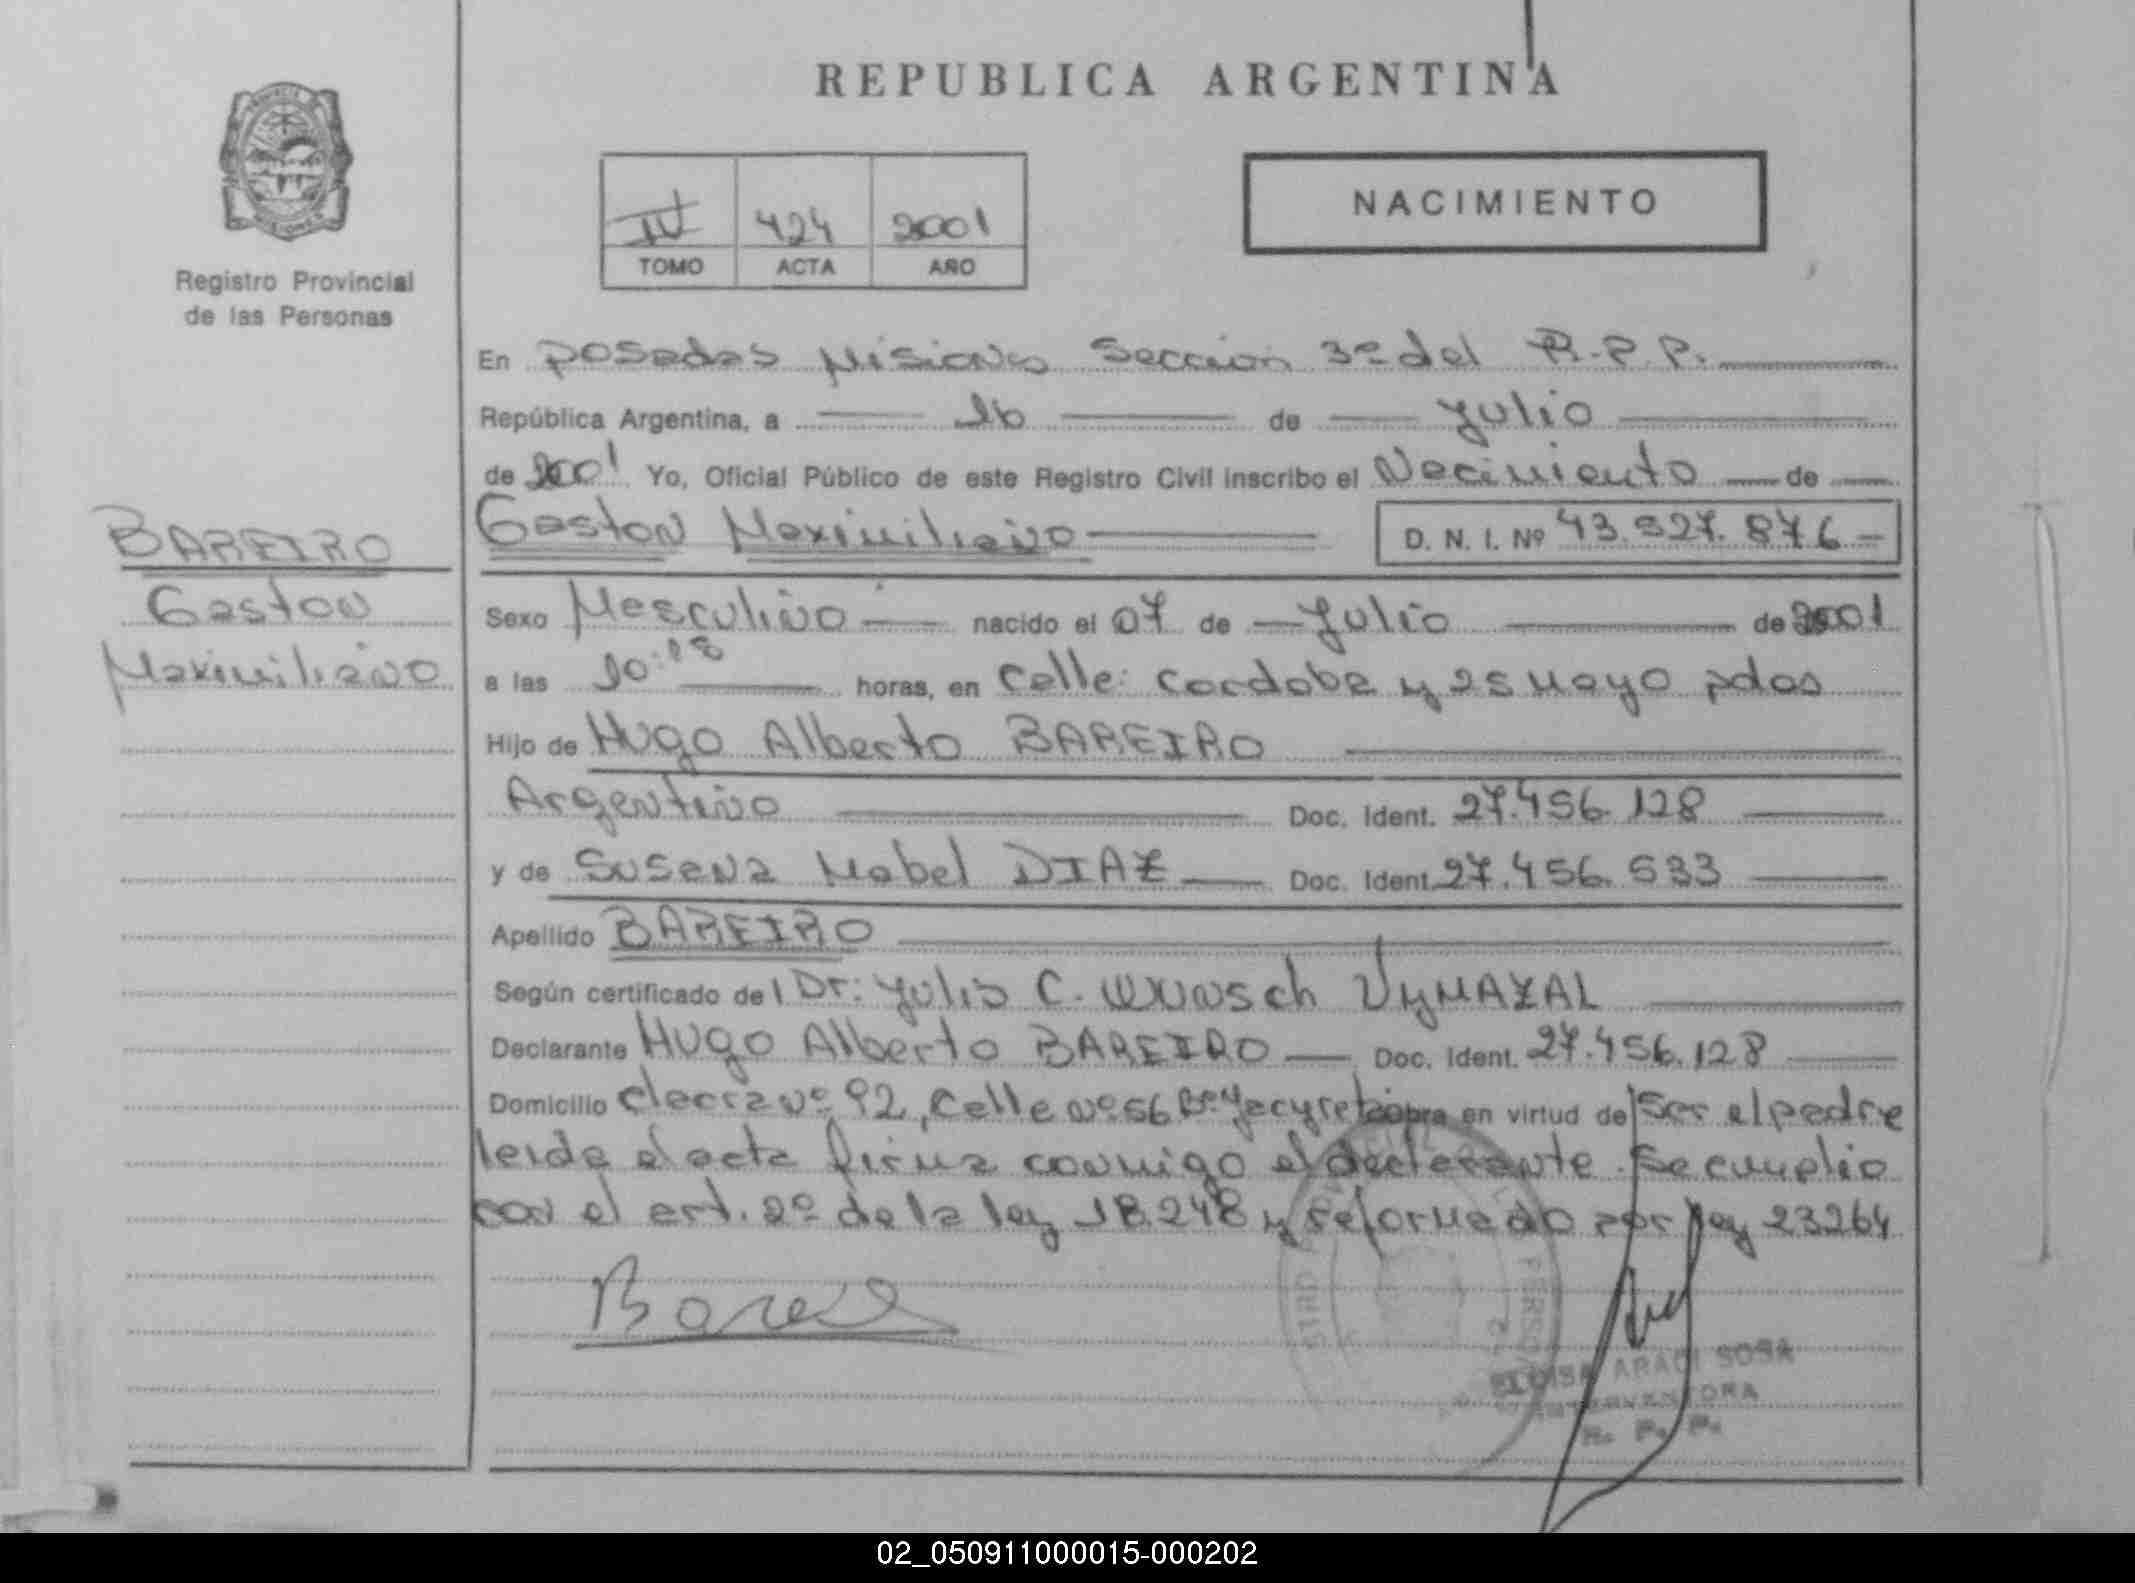 REPUBLICA ARGENTINA
NACIMIENTO
IV 424 2001
TOMO ACTA AÑO
Registro Provincial
de las Personas
En Posadas Misiones Sección 3º del R.P.P.
República Argentina, a 16 de Julio
de 2001 Yo, Oficial Público de este Registro Civil inscribo el Nacimiento de
Gaston Maximiliano D. N. I. Nº 43.527.876
BAREIRO
Gaston
Maximiliano
Sexo Masculino nacido el 07 de Julio de 2001
a las 10:18 horas, en Calle: Cordoba y 25 Mayo pdas
Hijo de Hugo Alberto BAREIRO
Argentino Doc. Ident. 27.456.128
y de Susana Mabel DIAZ Doc. Ident. 27.456.533
Apellido BAREIRO
Según certificado del Dr: Julio C. Wunsch VyMAZAL
Declarante Hugo Alberto BAREIRO Doc. Ident. 27.456.128
Domicilio chacra nº 92, Calle nº 56 Bº Yacyreta obra en virtud de ser el padre
leida el acta firma conmigo el declarante. Se cumplio
con el art. 2º de la ley 18.248 y reformado por ley 23264
ARACI SOSA
INTERVENTORA
R. P. P.
02_050911000015-000202